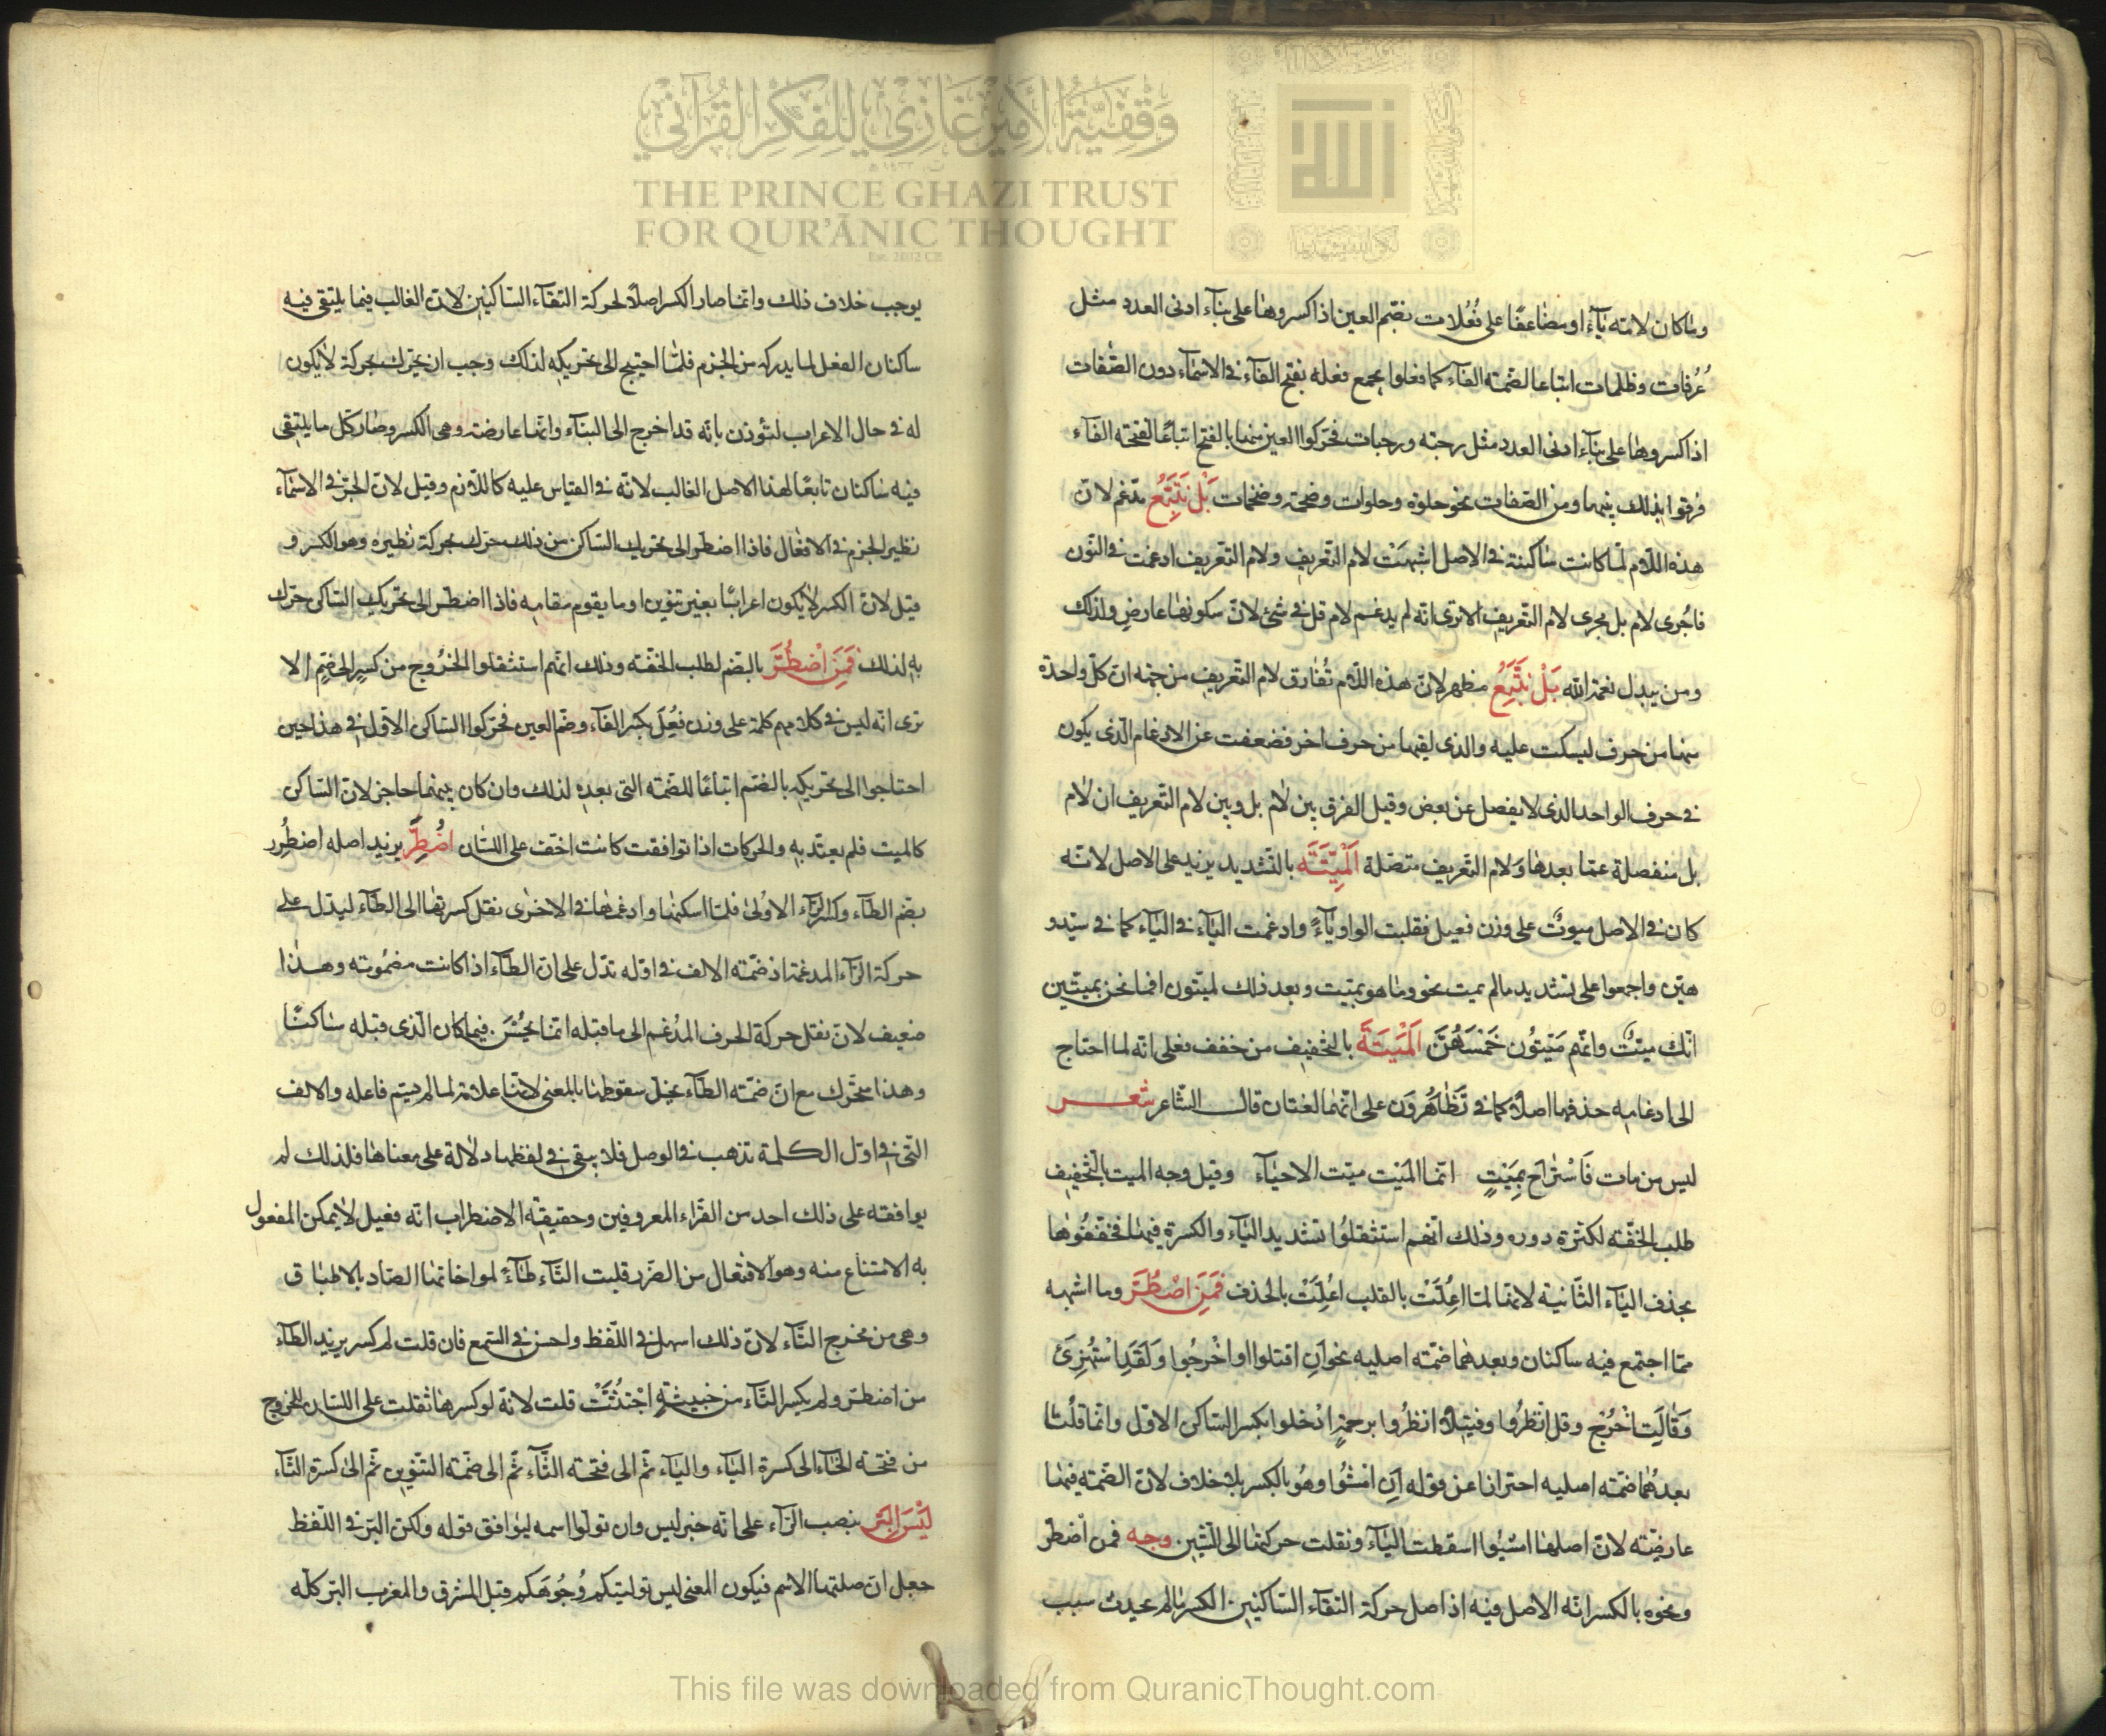 وَقْفِيَّةُ الأَمِيرْ غَازِي لِلْفِكْرِ القُرْآنِي
THE PRINCE GHAZI TRUST
FOR QUR'ĀNIC THOUGHT
Est. 2012 CE
الله
وما كان لامه ياء او مضاعفًا على فُعُلات بضم العين اذا كسروها على بناء ادنى العدد مثل
غُرُفات وظلمات اتباعا لضمة الفاء كما فعلوا بجمع فعله بفتح الفاء فى الاسماء دون الصّفات
اذا كسروها على بناء ادنى العدد مثل رحبه ورحبات فحركوا العين منها بالفتح اتباعًا لفتحة الفاء
فرقوا بذلك بينها ومن الصفات نحو حلوة وحلوات وضخمة وضخمات بَلْ نَتَّبِعُ مدغم لان
هذه اللام لما كانت ساكنة فى الاصل اشبهَتْ لام التعريف ولام التعريف ادغمت فى النون
فاجُرى لام بل مجرى لام التعريف الا ترى انه لم يدغم لام قل فى شئ لان سكونها عارض ولذلك
ومن يبدل نعمة الله بَلْ نَتَّبِعُ مظهر لانّ هذه اللام تُفارق لام التعريف من جهة ان كل واحدة
منها من حرف ليسكت عليه والذى لقيها من حرف اخر فضعفت عن الادغام الذى يكون
فى حرف الواحد الذى لا يفصل عن بعض وقيل الفرق بين لام بل وبين لام التعريف ان لام
بل منفصلة عما بعدها ولام التعريف متصلة اَلْمَيِّتَةَ بالتشديد يزيد على الاصل لانه
كان فى الاصل ميوتٌ على وزن فعيل فقلبت الواو ياءً وادغمت الياء فى الياء كما فى سيّد و
هيّن واجمعوا على تشديد مالم يمت نحو وما هو بميت وبعد ذلك لميّتون افما نحن بميتين
انّك ميتٌ وانهم مَيّتُون خَمْسَهُنَّ اَلْمَيْتَةَ بالتخفيف من خفف فعلى انه لما احتاج
الى ادغامه حذفها اصلًا كما فى تَظَاهَرُونَ على انهما لغتان قال الشاعر شعر
ليس من مات فَاسْتَراحَ بِمَيْتٍ انما المَيْت ميّت الاحياء وقيل وجه الميت بالتخفيف
طلب الخفّة لكثرة دوره وذلك انهم استثقلُوا تشديد الياء والكسرة فيها فخففُوها
بحذف الياء الثّانية لانها لما اعِلّتْ بالقلب اعْلِّتْ بالحذف فَمَنِ اضْطُرَّ وما اشبهه
ممّا اجتمع فيه ساكنان وبعدهما ضمّة اصليه نحو اَنِ اقتلوا او اخْرجُوا وَلَقَدِ اسْتُهْزِئَ
وَقَالَتِ اخْرُجْ وقل انْظرُوا وفتيلًا انظرُوا برحمةٍ ادْخلوا بكسر الساكن الاول وانما قلنا
بعدهُما ضمّة اصليه احترازا عن قوله اَنِ امْشُوا وهُو بالكسر بلا خلاف لان الضمة فيها
عارضة لان اصلها امشيُوا اسقطت الياء ونقلت حركتها الى الشين وجه فمن اضطر
ونحوه بالكسر انه الاصل فيه اذ اصل حركة التقاء الساكنين الكسر مالم يحدث سبب
يوجب خلاف ذلك وانما صار الكسر اصلا لحركة التقاء الساكنين لان الغالب فيما يلتقى فيه
ساكنان الفعل لما يدركه من الجزم فلمّا احتيج الى تحريكه لذلك وجب ان يحرّك بحركة لا يكون
له فى حال الاعراب لتؤذن بانه قد اخرج الى البناء وانها عارضة وهى الكسر وصار كل ما يلتقى
فيه ساكنان تابعًا لهذا الاصل الغالب لانه فى القياس عليه كاللازم وقيل لان الجرّ فى الاسماء
نظير الجزم فى الافعال فاذا اضطر الى تحريك الساكن من ذلك حرّك بحركة نظيره وهو الكسر و
قيل لان الكسر لا يكون اعرابًا بغير تنوين او ما يقوم مقامه فاذا اضطر الى تحريك الساكن حرّك
به لذلك فَمَنُ اضْطُرَّ بالضم لطلب الخفّة وذلك انهم استثقلوا الخرُوج من كسرٍ الى ضمٍ الا
ترى انه ليس فى كلامهم كلمة على وزن فِعُل بكسر الفاء وضم العين فحركوا الساكن الاول فى هذا حين
احتاجوا الى تحريكه بالضم اتباعًا للضمة التى بعده لذلك وان كان بينهما حاجز لان الساكن
كالميت فلم يعتد به والحركات اذا توافقت كانت اخفّ على اللسان اضْطِرَّ يزيد اصله اضطُرِر
بضم الطاء وكسر الراء الاولى فلما اسكنها وادغمها فى الاخرى نقل كسرتها الى الطاء ليدل على
حركة الراء المدغمة اذ ضمّة الالف فى اوّله تدل على ان الطاء اذا كانت مضمُومة وهذا
ضعيف لان نقل حركة الحرف المدْغم الى ما قبله انما يحْسُن فيما كان الذى قبله ساكنًا
وهذا متحرّك مع ان ضمة الطاء يخل سقوطها بالمعنى لانها علامة لما لم يسم فاعله والالف
التى فى اول الكلمة تذهب فى الوصل فلا يبقى فى لفظها دلالة على معناها فلذلك لم
يوافقه على ذلك احد من القراء المعروفين وحقيقة الاضطراب انه فعيل لا يمكن المفعول
به الامتناع منه وهو الافتعال من الضّرر قلبت التاء طاءً لمواخاتها الضاد بالاطباق
وهى من مخرج التاء لان ذلك اسهل فى اللّفظ واحسن فى السّمع فان قلت لم كسر يزيد الطاء
من اضطر ولم يكسر الثاء من خبيثةٍ اجْتثّتْ قلت لانه لو كسرها ثقلت على اللسان للخروج
من فتحة الخاء الى كسرة الباء والياء ثم الى فتحة الثاء ثم الى ضمة التنوين ثم الى كسرة الثاء
لَيْسَ الْبِرَّ بنصب الرّاء على انه خبر ليس وان تولّوا اسمه ليوافق قوله ولكن البر فى اللّفظ
جعل ان صلتها الاسم فيكون المعنى ليس توليتكم وُجُوهَكم قبل المشرق والمغرب البر كله
This file was downloaded from QuranicThought.com